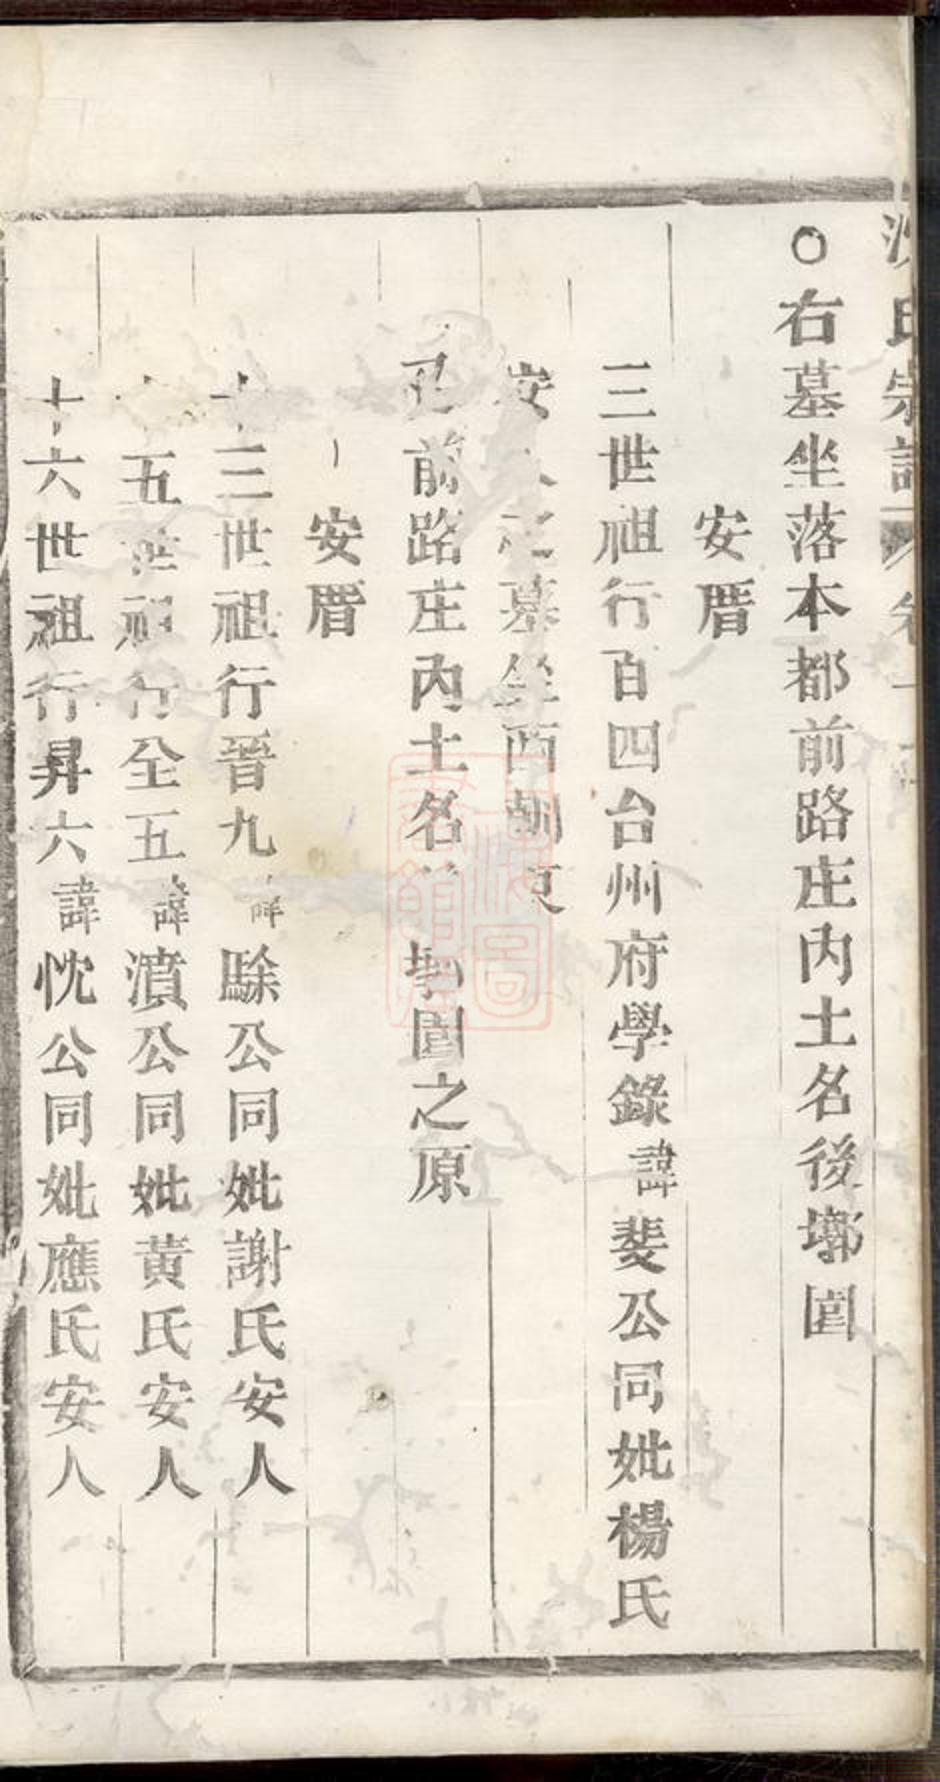 氏宗譜 卷
○右墓坐落本都前路庄内土名後墎園
安厝
三世祖行百四台州府學錄諱斐公同妣楊氏
安人之墓坐酉朝東
前路庄内土名 墎園之原
安厝
十三世祖行晉九諱 公同妣謝氏安人
五世祖行全五諱濆公同妣黃氏安人
十六世祖行昇六諱忱公同妣應氏安人